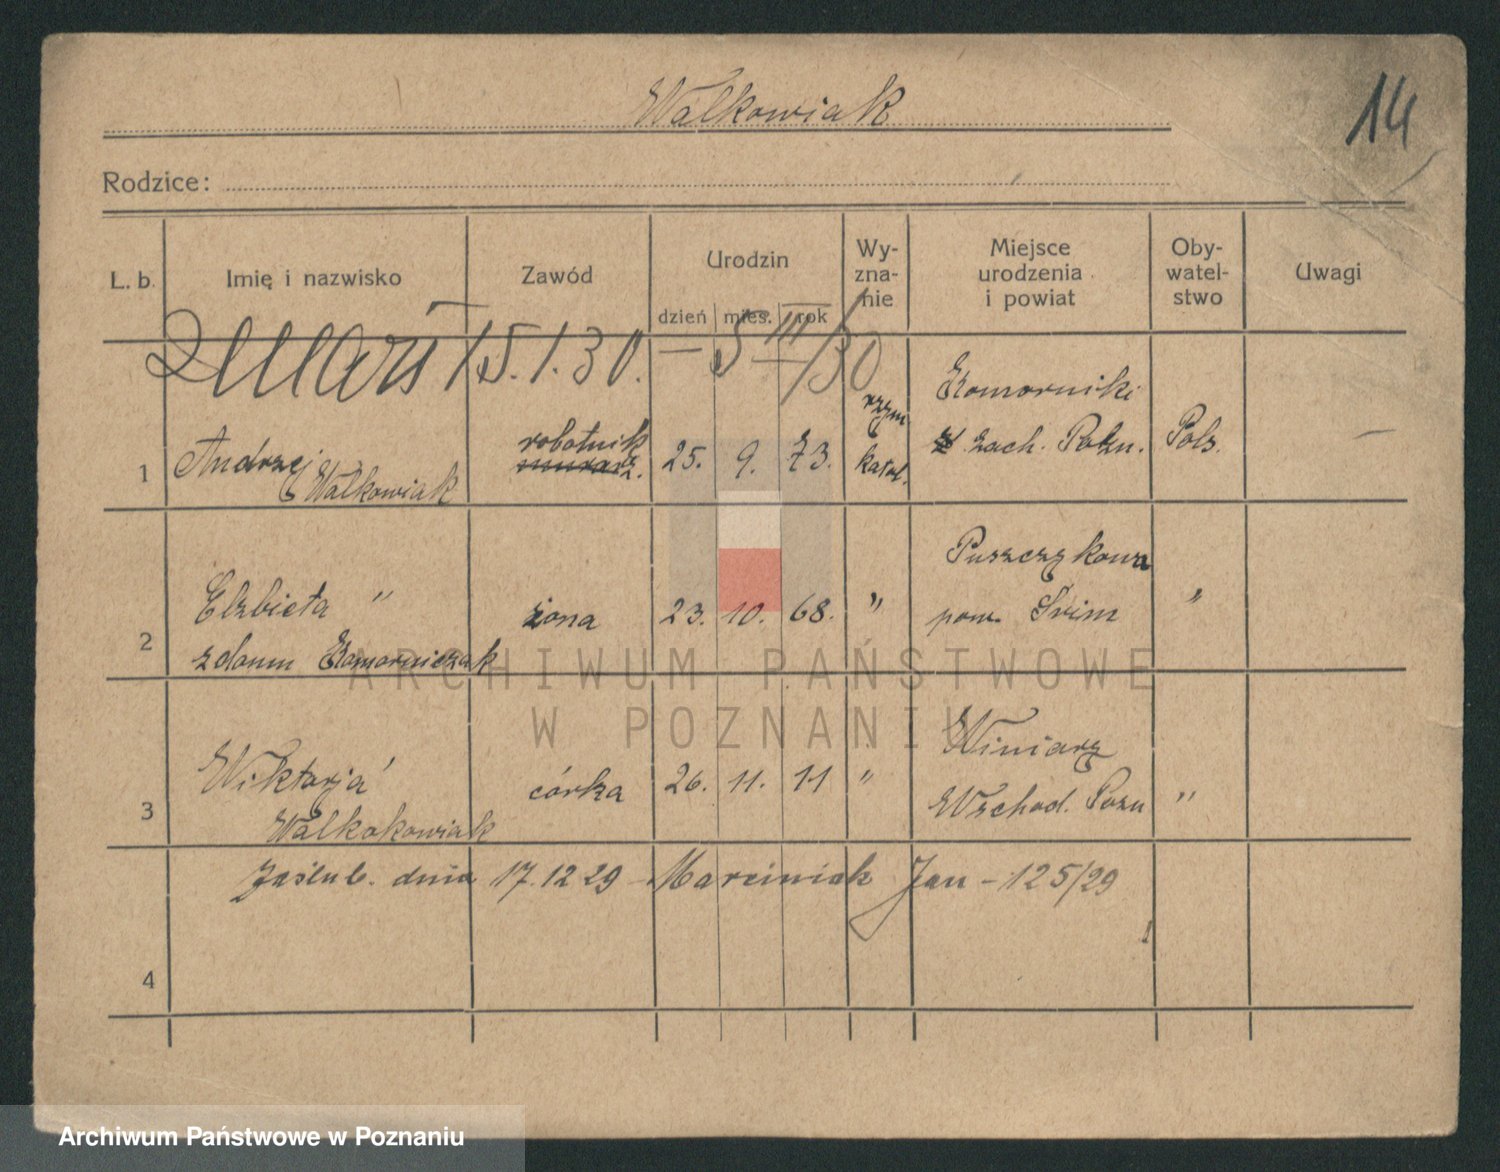 Walkowiak
14
Rodzice:
L. b. Imię i nazwisko Zawód Urodzin Wy-zna-nie Miejsce urodzenia i powiat Oby-watel-stwo Uwagi
dzień mies. rok
Zmarł 15.1.30. — 5 III/30
1 Andrzej Walkowiak robotnik murarz. 25. 9. 73. rzym katol. Komorniki zach. Pozn. Pols.
2 Elzbieta " żona 23. 10. 68. " Puszczykowa pow. Śrim "
z domu Komorniczak
3 Wiktorja córka 26. 11. 11 " Winiary Wschod. Pozn "
Walkokowiak
Zaślub. dnia 17.12 29 - Marciniak Jan - 125/29
4
ARCHIWUM PAŃSTWOWE
W POZNANIU
Archiwum Państwowe w Poznaniu